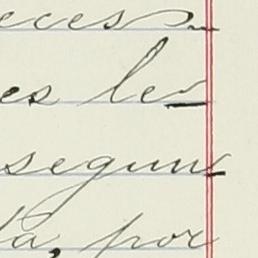 eces
es le
segun
la, por